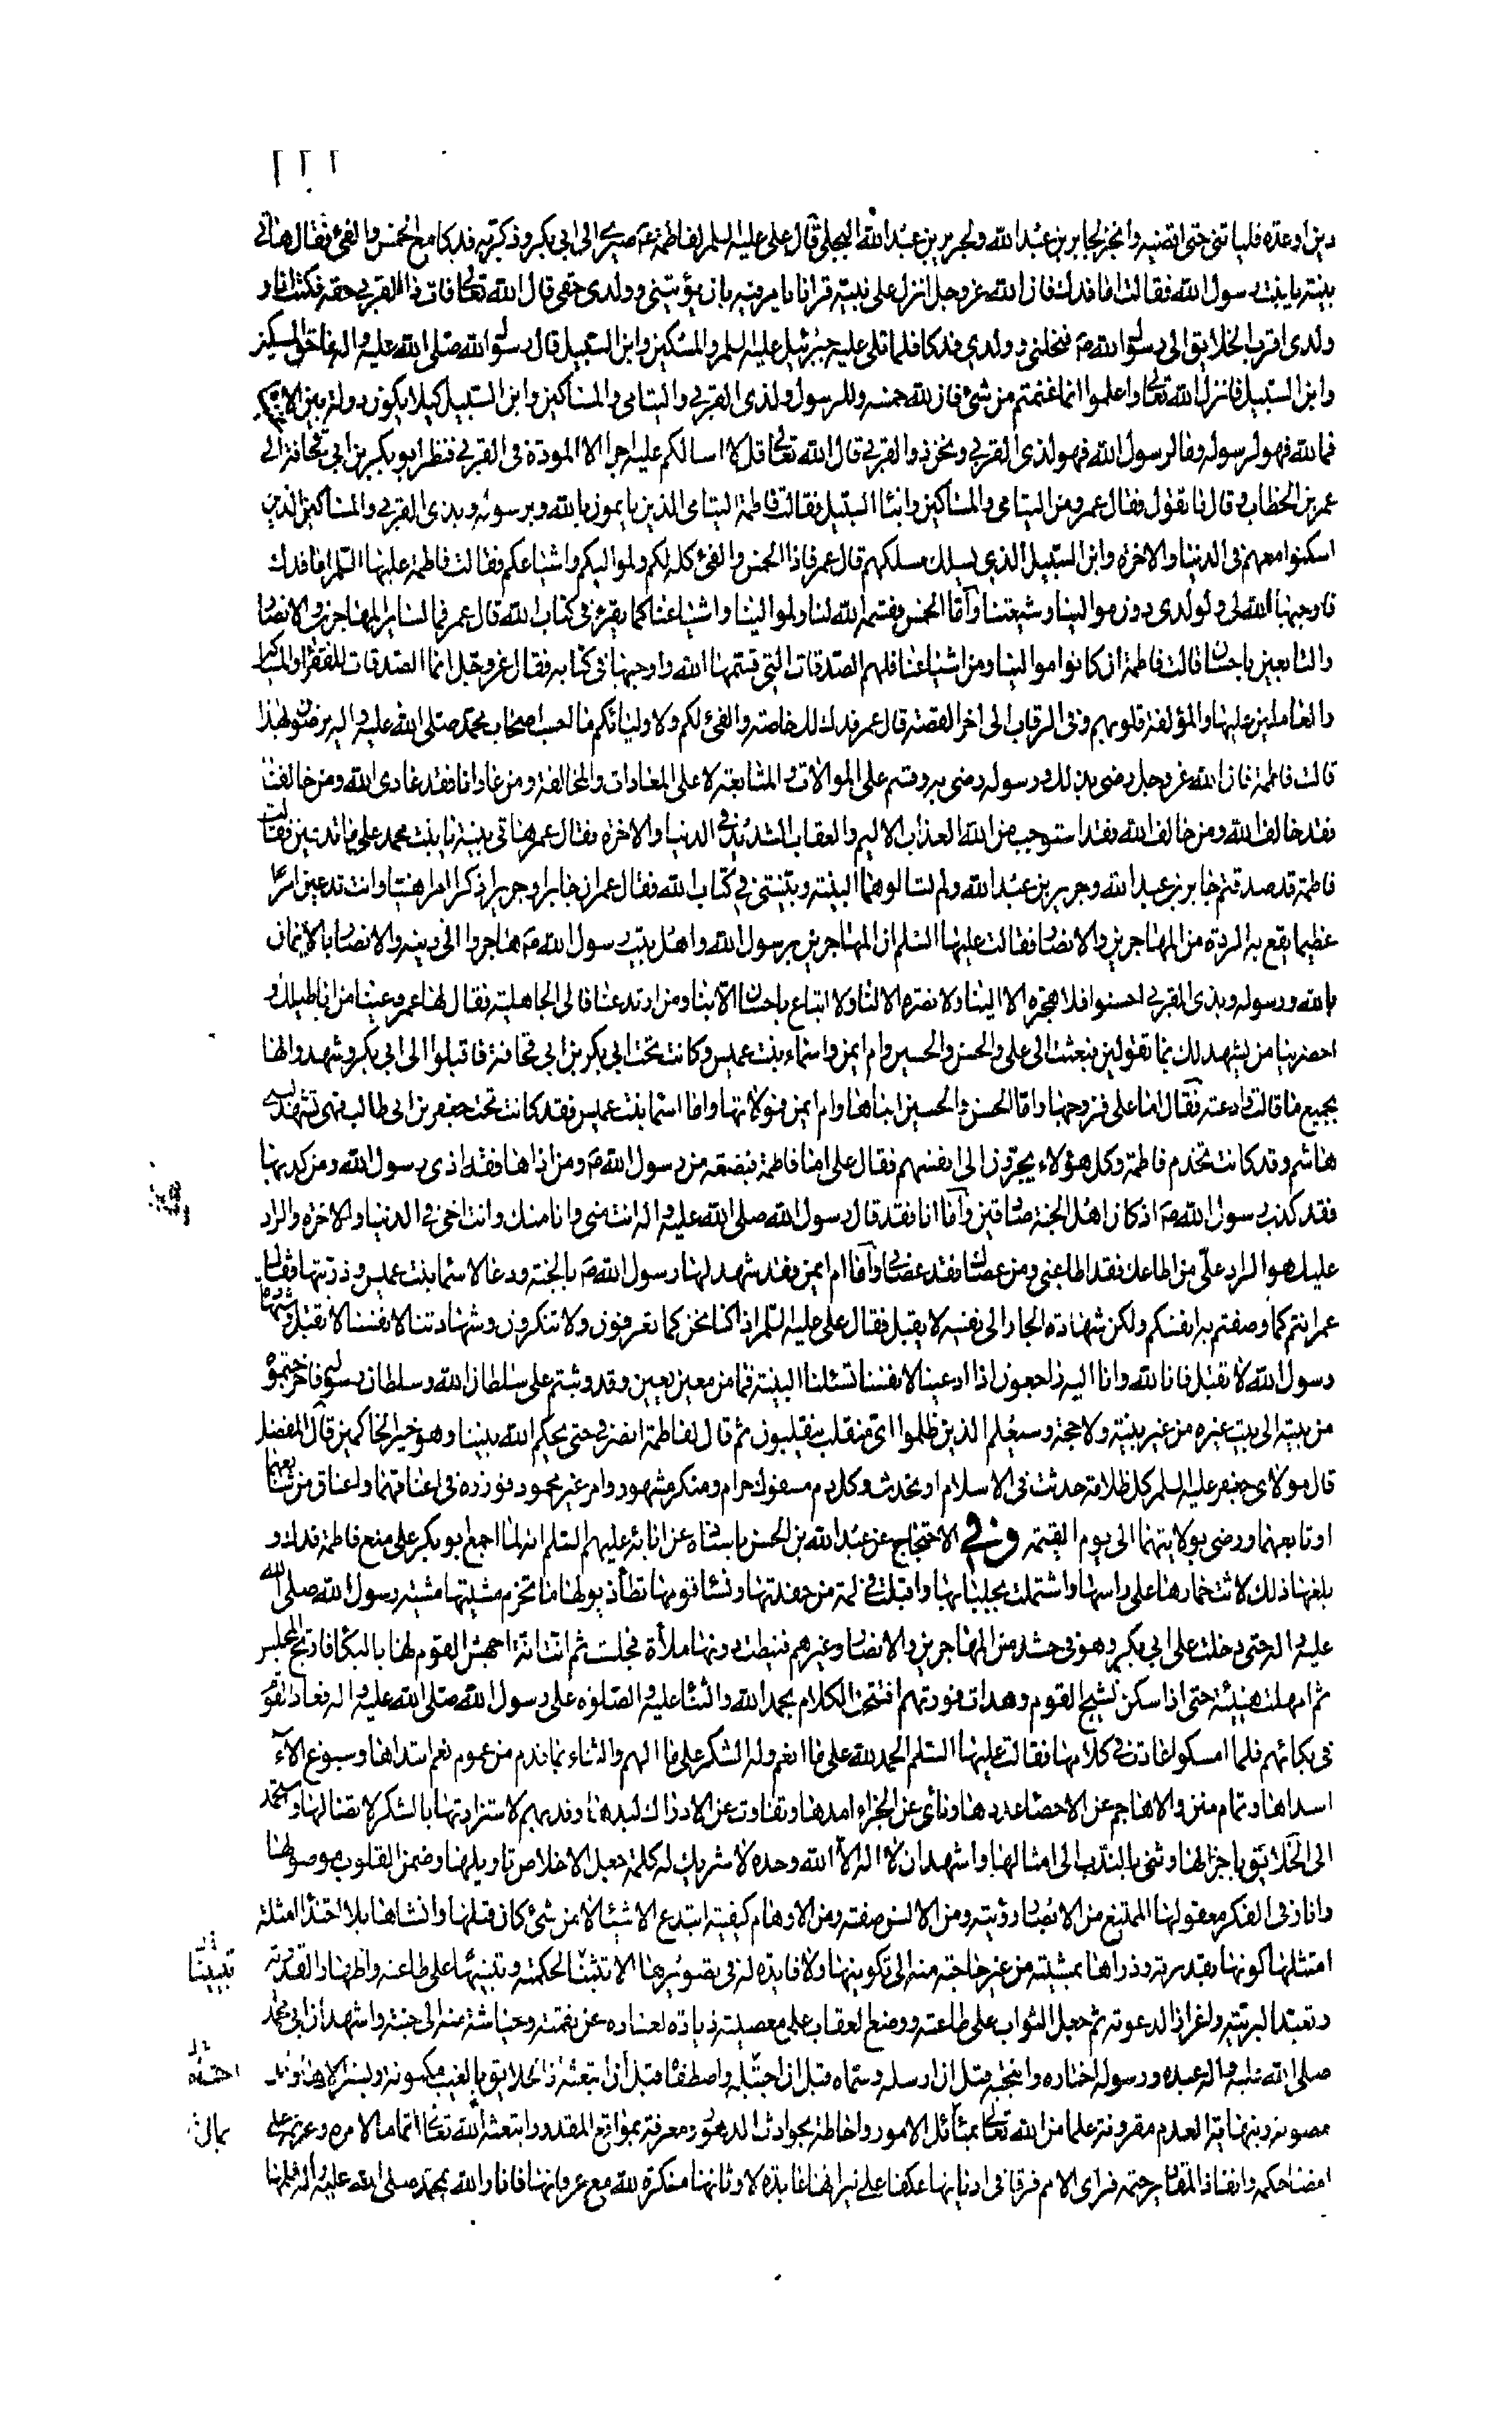 دين او عدة فلياتنى حتى اقضيه وانجز لجابر بن عبد الله ولجرير بن عبد الله البجلى قال على عليه السلم لفاطمة ع صيرى الى ابى بكر وذكريه فدكا مع الخمس والفئ فقال هاتى
بينة يا بنت رسول الله فقالت اما فدك فان الله عز وجل انزل على نبيه قرانا يامر فيه بان يؤتينى وولدى حقى قال الله تعالى فات ذا القربى حقه فكنت انا و
ولدى اقرب الخلايق الى رسول الله ص فنحلنى وولدى فدكا فلما تلى عليه جبرئيل عليه السلم والمسكين وابن السبيل قال رسول الله صلى الله عليه واله ما حق المسكين
وابن السبيل فانزل الله تعالى واعلموا انما غنمتم من شئ فان لله خمسه وللرسول ولذى القربى واليتامى والمساكين وابن السبيل كيلا يكون دولة بين الاغنياء منكم
فما لله فهو لرسوله وما لرسول الله فهو لذى القربى ونحن ذو القربى قال الله تعالى قل لا اسالكم عليه اجرا الا المودة فى القربى فنظر ابو بكر بن ابى قحافة الى
عمر بن الخطاب وقال ما تقول فقال عمر ومن اليتامى والمساكين وابناء السبيل فقالت فاطمة اليتامى الذين ياتمون بالله وبرسوله وبذى القربى والمساكين الذين
اسكنوا معهم فى الدنيا والاخرة وابن السبيل الذى يسلك مسلكهم قال عمر فاذا الخمس والفئ كله لكم ولمواليكم واشياعكم فقالت فاطمة عليها السلم اما فدك
فاوجبها الله لى ولولدى دون موالينا وشيعتنا واما الخمس فقسمه الله لنا ولموالينا واشياعنا كما يقرء فى كتاب الله قال عمر فما لسائر المهاجرين والانصار
والتابعين باحسان قالت فاطمة ان كانوا موالينا ومن اشياعنا فلهم الصدقات التى قسمها الله واوجبها فى كتابه فقال عز وجل انما الصدقات للفقراء والمساكين
والعاملين عليها والمؤلفة قلوبهم وفى الرقاب الى اخر القصة قال عمر فدك لك خاصة والفئ لكم ولاوليائكم ما احسب اصحاب محمد صلى الله عليه واله يرضون بهذا
قالت فاطمة فان الله عز وجل رضى بذلك ورسوله رضى به وقسم على الموالات والمتابعة لا على المعادات والمخالفة ومن عادانا فقد عادى الله ومن خالفنا
فقد خالف الله ومن خالف الله فقد استوجب من الله العذاب الاليم والعقاب الشديد فى الدنيا والاخرة فقال عمر هاتى بينة يا بنت محمد على ما تدعين فقالت
فاطمة قد صدقتم جابر بن عبد الله وجرير بن عبد الله ولم تسالوهما البينة وبينتى فى كتاب الله فقال عمر ان جابرا وجريرا ذكرا امرا هينا وانت تدعين امرا
عظيما يقع به الردة من المهاجرين والانصار فقالت عليها السلم ان المهاجرين برسول الله واهل بيت رسول الله ص هاجروا الى دينه والانصار بالايمان
بالله ورسوله وبذى القربى احسنوا فلا هجرة الا الينا ولا نصرة الا لنا ولا اتباع باحسان الا بنا ومن ارتد عنا فالى الجاهلية فقال لها عمر دعينا من اباطيلك و
احضرينا من يشهد لك بما تقولين فبعثت الى على والحسن والحسين وام ايمن واسماء بنت عميس وكانت تحت ابى بكر بن ابى قحافة فاقبلوا الى ابى بكر وشهدوا لها
بجميع ما قالت وادعته فقال اما على فزوجها واما الحسن والحسين ابناها وام ايمن فمولاتها واما اسماء بنت عميس فقد كانت تحت جعفر بن ابى طالب فهى تشهد لبنى
هاشم وقد كانت تخدم فاطمة وكل هؤلاء يجرون الى انفسهم فقال على اما فاطمة فبضعة من رسول الله ص ومن اذاها فقد اذى رسول الله ومن كذبها
فقد كذب رسول الله ص اذ كان اهل الجنة صادقين واما انا فقد قال رسول الله صلى الله عليه واله انت منى وانا منك وانت اخى فى الدنيا والاخرة والراد
عليك هو الراد على من اطاعك فقد اطاعنى ومن عصاك فقد عصانى واما ام ايمن فقد شهد لها رسول الله ص بالجنة ودعا لاسماء بنت عميس وذريتها فقال
عمر انتم كما وصفتم به انفسكم ولكن شهادة الجار الى نفسه لا يقبل فقال على عليه السلم اذا كنا نحن كما تعرفون ولا تنكرون وشهادتنا لانفسنا لا تقبل وشهادة
رسول الله لا تقبل فانا لله وانا اليه راجعون اذا ادعينا لانفسنا تسئلنا البينة فما من معين يعين وقد وثبتم على سلطان الله وسلطان رسوله فاخرجتموه
من بيته الى بيت غيره من غير بينة ولا حجة وسيعلم الذين ظلموا اى منقلب ينقلبون ثم قال لفاطمة انصرفى حتى يحكم الله بيننا وهو خير الحاكمين قال المفضل
قال مولاى جعفر عليه السلم كل ظلامة حدثت فى الاسلام او تحدث وكل دم مسفوك حرام ومنكر مشهور وامر غير محمود فوزره فى اعناقهما واعناق من شايعهما
او تابعهما ورضى بولايتهما الى يوم القيمة وفى الاحتجاج عن عبد الله بن الحسن باسناده عن ابائه عليهم السلم انه لما اجمع ابو بكر على منع فاطمة فدك و
بلغها ذلك لاثت خمارها على راسها واشتملت بجلبابها واقبلت فى لمة من حفدتها ونساء قومها تطأ ذيولها ما تخرم مشيتها مشية رسول الله صلى الله
عليه واله حتى دخلت على ابى بكر وهو فى حشد من المهاجرين والانصار وغيرهم فنيطت دونها ملأة فجلست ثم انت انة اجهش القوم لها بالبكاء فارتج المجلس
ثم امهلت هنيئة حتى اذا سكن نشيج القوم وهدات فورتهم افتتحت الكلام بحمد الله والثناء عليه والصلوة على رسول الله صلى الله عليه واله فعاد القوم
فى بكائهم فلما امسكوا عادت فى كلامها فقالت عليها السلم الحمد لله على ما انعم وله الشكر على ما الهم والثناء بما قدم من عموم نعم ابتداها وسبوغ الاء
اسداها وتمام منن والاها جم عن الاحصاء عددها وناى عن الجزاء امدها وتفاوت عن الادراك ابدها وندبهم لاستزادتها بالشكر لاتصالها واستحمد
الى الخلايق باجزالها وثنى بالندب الى امثالها واشهد ان لا اله الا الله وحده لا شريك له كلمة جعل الاخلاص تاويلها وضمن القلوب موصولها
وانار فى الفكر معقولها الممتنع من الابصار رؤيته ومن الالسن صفته ومن الاوهام كيفيته ابتدع الاشياء لا من شئ كان قبلها وانشاها بلا احتذاء امثلة
امتثلها كونها بقدرته وذراها بمشيته من غير حاجة منه الى تكوينها ولا فايدة له فى تصويرها الا تثبيتا لحكمته وتنبيها على طاعته واظهارا لقدرته
وتعبدا لبريته واعزازا لدعوته ثم جعل الثواب على طاعته ووضع العقاب على معصيته ذيادة لعباده عن نقمته وحياشة منه الى جنته واشهد ان ابى محمد
صلى الله عليه واله عبده ورسوله اختاره وانتجبه قبل ان ارسله وسماه قبل ان اجتبله واصطفاه قبل ان ابتعثه اذ الخلايق بالغيب مكنونة وبستر الاهاويل
مصونة وبنهاية العدم مقرونة علما من الله تعالى بمائل الامور واحاطة بحوادث الدهور ومعرفة بمواقع المقدور ابتعثه الله تعالى اتماما لامره وعزيمة على
امضاء حكمه وانفاذا لمقادير حتمه فراى الامم فرقا فى اديانها عكفا على نيرانها عابدة لاوثانها منكرة لله مع عرفانها فانار الله بمحمد صلى الله عليه واله ظلمها